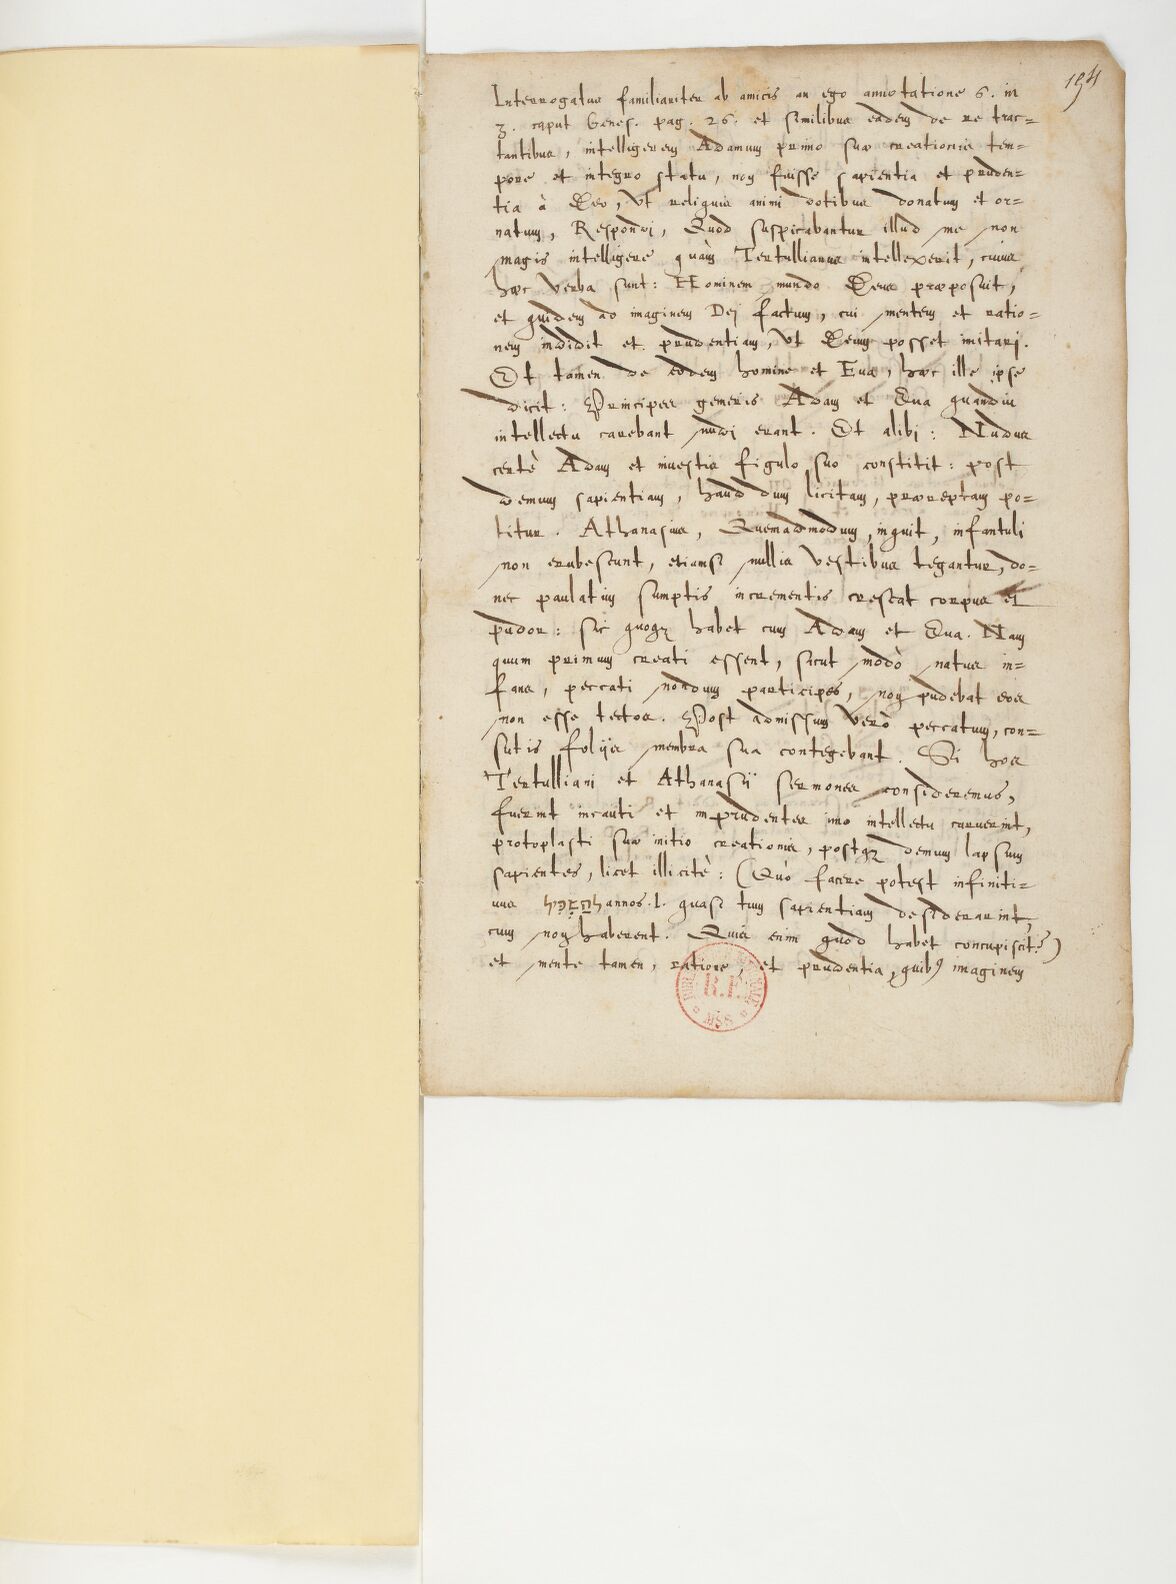 194
Interrogatus familiariter ab amicis an ego annotatione 6. in
3. caput Genes. pag. 26. et similibus eadem de re trac=
tantibus, intelligerem Adamum primo suæ creationis tem=
pore et integro statu, non fuisse sapientia et pruden=
tia à Deo, ut reliquis animi dotibus donatum et or=
natum, Respondi, Quod suspicabantur illud me non
magis intelligere quàm Tertullianus intellexerit, cuius
hæc verba sunt: Hominem mundo Deus præposuit,
et quidem ad imaginem Dei factum, cui mentem et ratio=
nem indidit et prudentiam, ut Deum posset imitari.
Et tamen de eodem homine et Eva, hæc ille ipse
dicit: Principes generis Adam et Eva quandiu
intellectu carebant nudi erant. Et alibi: Nudus
certè Adam et investis figulo suo constitit: post
demum sapientiam, haud dum licitam, præreptam po=
titur. Athanasius, Quemadmodum, inquit, infantuli
non erubescunt, etiamsi nullis vestibus tegantur, do=
nec paulatim sumptis incrementis crescat corpus et
pudor: sic quoqꝫ habet cum Adam et Eva. Nam
quum primum creati essent, sicut modò natus in=
fans, peccati nondum participes, non pudebat eos
non esse tectos. Post admissum verò peccatum, con=
sutis folijs membra sua contegebant. Si hos
Tertulliani et Athanasij sermones consideremus,
fuerint incauti et imprudentes imo intellectu caruerint,
protoplasti suæ initio creationis, postqꝫ demum lapsum
sapientes, licet illicitè: (Quò facere potest infiniti=
vus annos .1. quasi tum sapientiam desiderarint,
cum non haberent. Quis enim quod habet concupiscit?)
et mente tamen, ratione, et prudentia, quibꝰ imaginem
R.F.
MSS